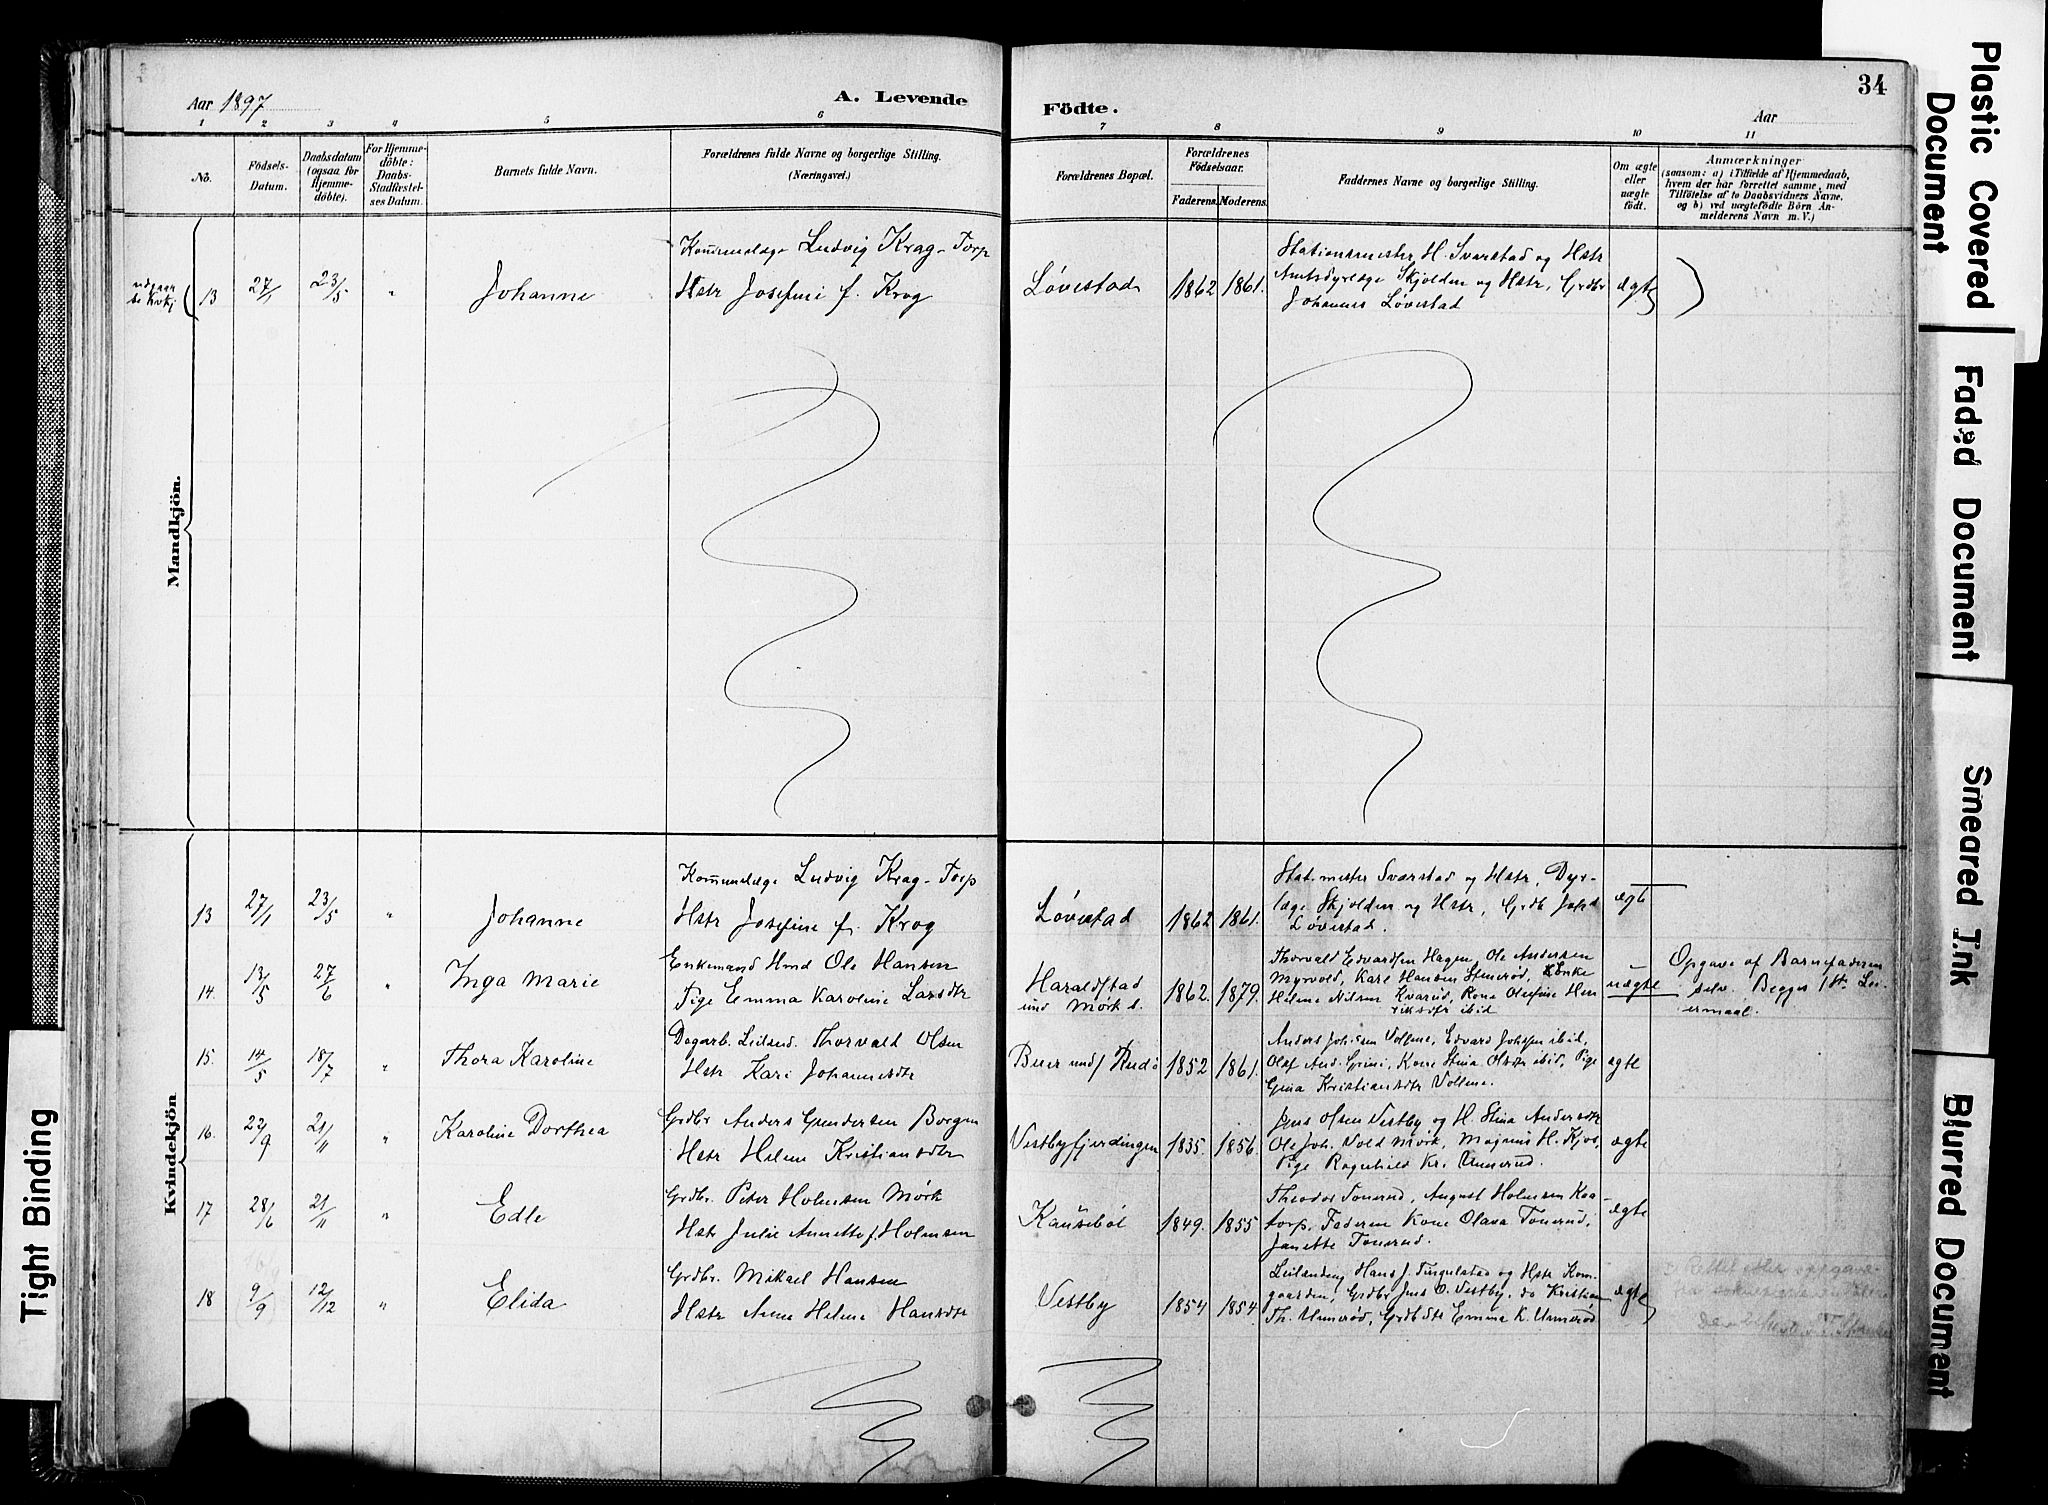 34
Aar 1897
A. Levende
Födte.
Aar
1 2 3 4 5 6 7 8 9 10 11
No.
Födsels-
Datum.
Daabsdatum
(ogsaa for
Hjemme-
döbte).
For Hjemme-
döbte:
Daabs-
Stadfæstel-
ses Datum.
Barnets fulde Navn.
Forældrenes fulde Navne og borgerlige Stilling.
(Næringsvei.)
Forældrenes Bopæl.
Forældrenes
Födselsaar.
Faderens. Moderens.
Faddernes Navne og borgerlige Stilling.
Om ægte
eller
uægte
født.
Anmærkninger
(saasom: a) i Tilfælde af Hjemmedaab,
hvem der har forrettet samme, med
Tilföielse af to Daabsvidners Navne,
og b) ved uægtefödte Börn An-
melderens Navn m. V.)
Mandkjön.
udgaar
13 27/1 23/5 " Johanne
Kommunelæge Ludvig Krag-Torp
Hstr Josefine f. Krog
Løvestad 1862 1861.
Stationsmester H. Svarstad og Hstr
Amtsdyrlæge Skjolden og Hstr, Grdbr
Johannes Løvestad
ægte
Kvindekjön
13 27/1 23/5 " Johanne
Kommunelæge Ludvig Krag-Torp
Hstr Josefine f. Krog
Løvestad 1862 1861.
Stat.mester Svarstad og Hstr, Dyr-
læge Skjolden og Hstr, Grdb Johs
Løvestad.
ægt
14. 13/5 27/6 " Inga Marie
Enkemand Hmd Ole Hansen
Pige Emma Karoline Larsdtr
Haraldstad
und Mørk 1862. 1879.
Thorvald Edvardsen Hagen, Ole Andersen
Myrvold, Karl Hansen Stenerød, Enke
Helene Nilsen Kvarud, Kone Olefine Hen
riksdtr ibid
uægte
Opgave af Barnefaderen
selv. Begges 1ste Lei-
ermaal.
15. 14/5 18/7 " Thora Karoline
Dagarb. Leilænd. Thorvald Olsen
Hstr Kari Johannesdtr
Buer und/ Rud 1852 1861.
Anders Johnsen Vollene, Edvard Johsen ibid,
Olaf And. Grini, Kone Stina Olsdtr ibid, Pige
Gina Kristiansdtr Vollene.
ægte
16. 22/9 21/11 " Karoline Dorthea
Grdbr Anders Gundersen Borgen
Hstr Helene Kristiansdtr
Vestbyfjerdingen 1835. 1856.
Jens Olsen Vestby og H. Stina Andersdtr
Ole Joh. Vold Mørk, Magnus H. Kjos,
Pige Ragnhild Kr. Unnerud.
ægte
17 28/6 21/11 " Edle
Grdbr. Peter Holmsen Mørk
Hstr Julie Annette f. Holmsen
1849. 1855
Theodor Tonerud, August Holmsen Kaa-
torp, Faderen Kone Olava Tonerud,
Janette Tonerud.
ægte
18 9/9 12/12 " Elida
Grdbr. Mikael Hansen
Hstr Anne Helene Hansdtr
Vestby 1854 1854.
Leilænding Hans J. Tingulstad og Hstr Kom-
gaarden, Grdbr Jens O. Vestby, do Kristian
Th. Unnerød, Grdbdtr Emma K. Unnerød
ægte
Plastic Covered
Document
Faded Document
Smeared Ink
Blurred Document
Tight Binding